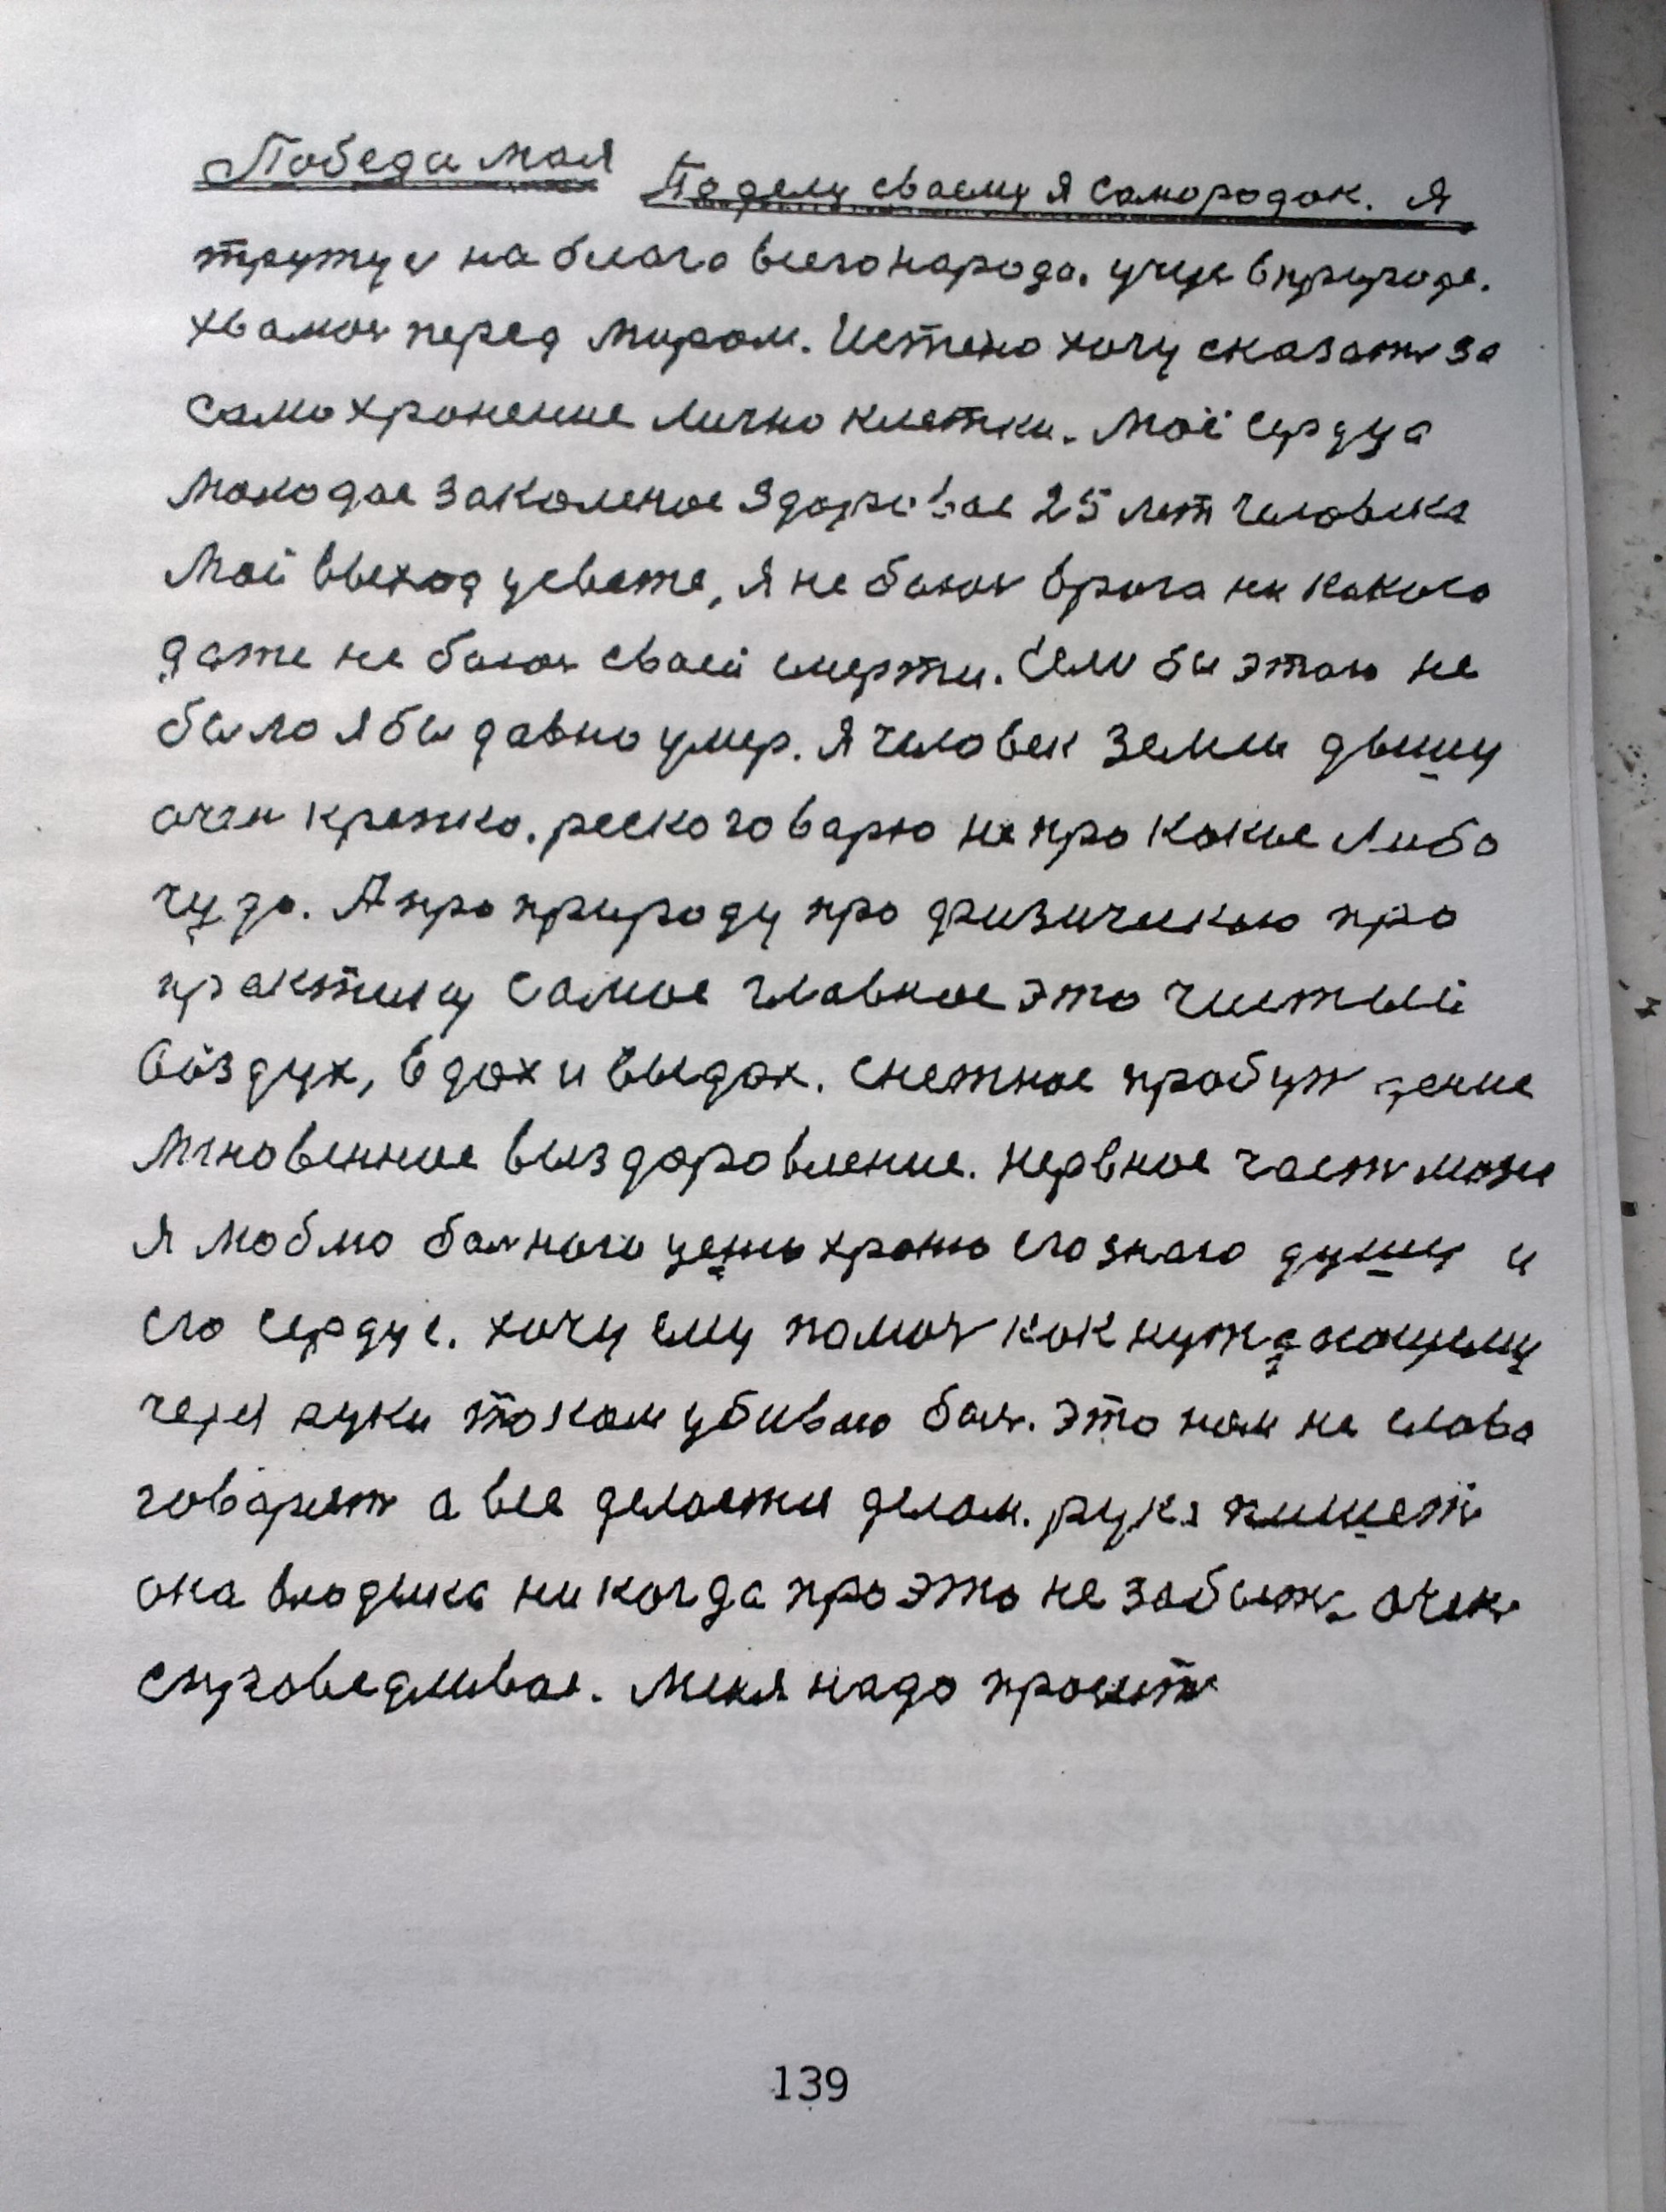 Победа моя По делу своему я самородок. я
тружус на благо всего народа. учус в природе.
хвалюс перед миром. Истено хочу сказать за
само хронение лично клетки. моё сердца
молодое закаленое здоровое 25 лет человека
мой выход у свете, я не боюс врага ни какого
даже не боюс своей смерти. Если бы этого не
было я бы давно умер. я человек земли дышу
очен крепко. реско говарю не про какие либо
чудо. А про природу про физическою про
практику самое главное это чистый
воздух, вдох и выдох. снежное пробуж дение
мгновенное выздоровление. нервное част мозга
я люблю больного ценю храню его знаю душу и
его сердце. хочу ему помоч как нуждающему
через руки током убиваю боль. это нам не слова
говарят а все делается делом. рука пишет
она владыка ни когда про это не забыть. очень
справедливое. меня надо просить
139